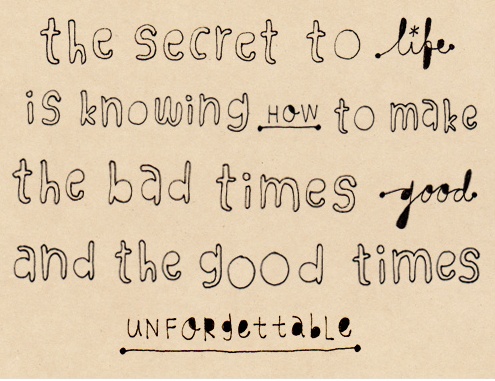 the secret to life
is knowing HOW to make
the bad times good
and the good times
UNFORgettabLe